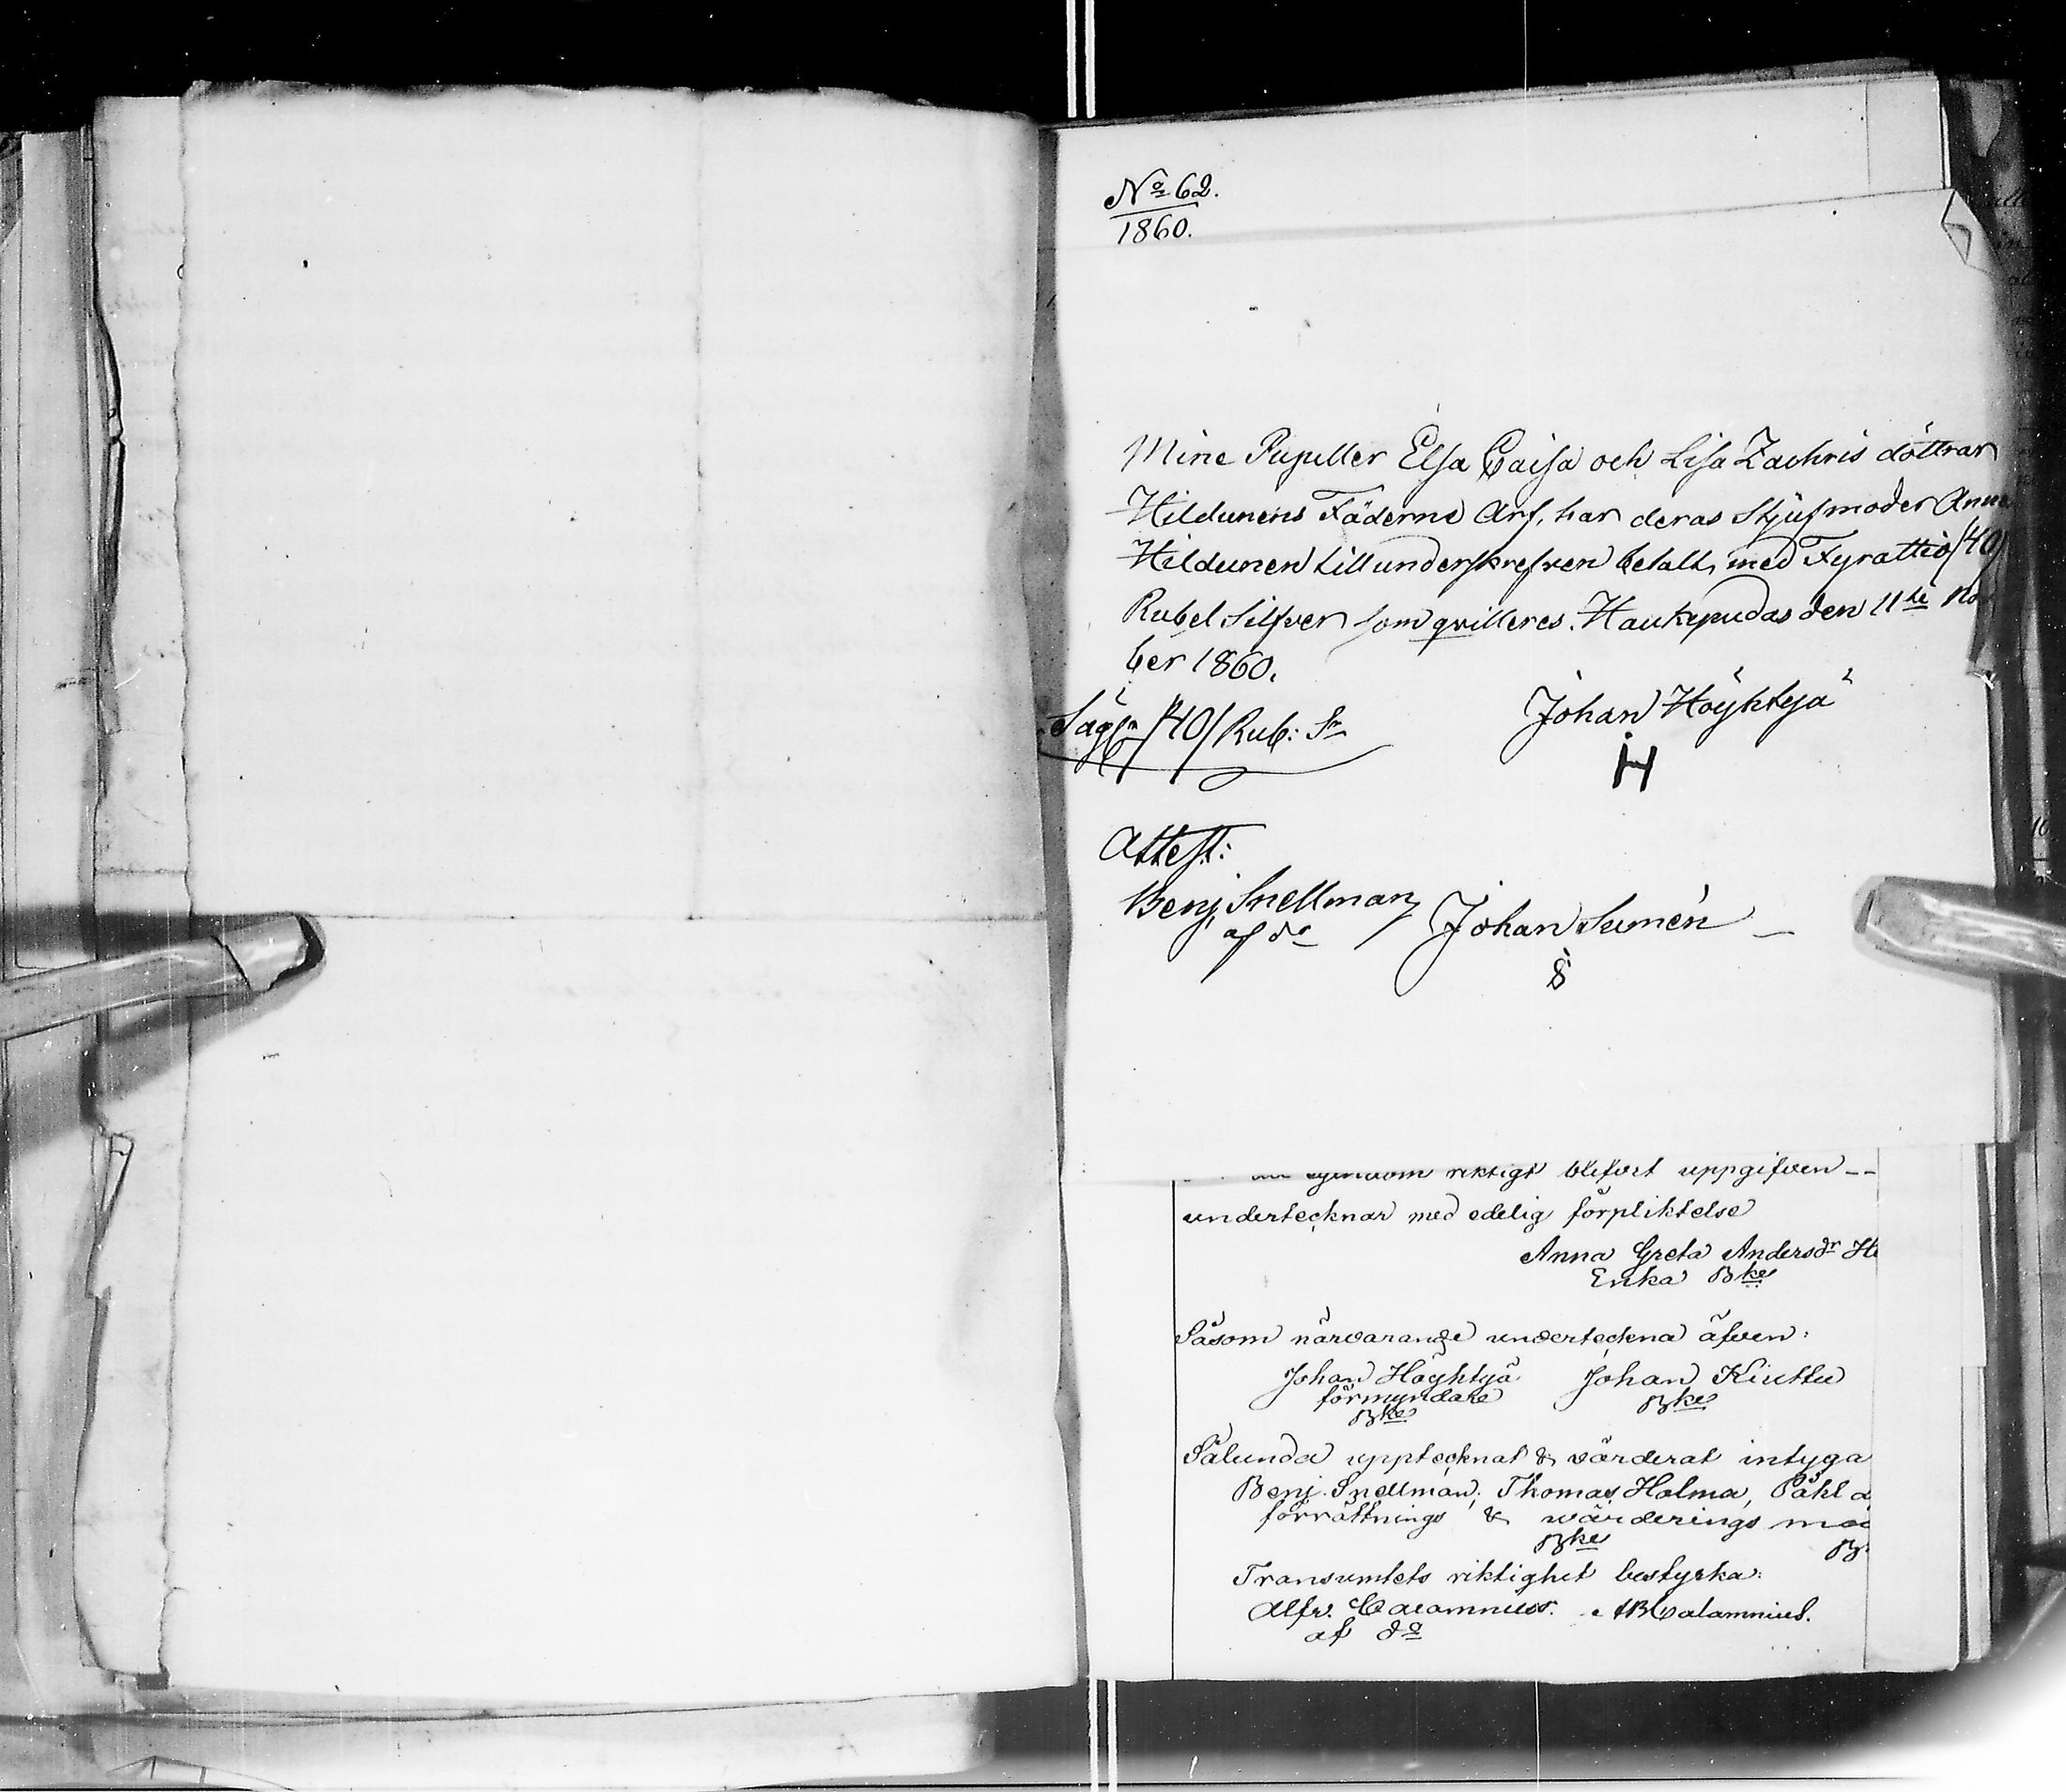 No 62.
1860.
Mine Pupiller Elsa Caisa och Lisa Zachris döttrar
Hildunens Fäderne Arf, har deras Stjufmoder Anna
Hildunen till underskrefven betalt, med Fyratio /40/
Rubel Silfver som qvitteres. Haukepudas den 11te No
ber 1860.
Johan Höyhtyä
H
Säger /40/ Rub: Sr
Attest:
Benj Snellman Johan Sumén
af do
S
egendom riktigt blifvit uppgifven --
undertecknar med edelig förpliktelse
Anna Greta Andersdr Hi
Enka Bke
Såsom närvarande underteckna äfven:
Johan Höyhtyä Johan Kiuttu
förmyndare Bke
Bke
Sålunda upptecknat & värderat intyga
Benj. Snellman, Thomas Holma, Påhl
förrättnings & wärderings
Bke
Transumtets riktighet bestyrka:
Alfr. Calamnius. AB Calamnius.
af do